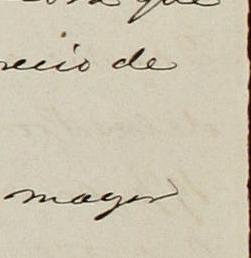 que
recio de
mayor